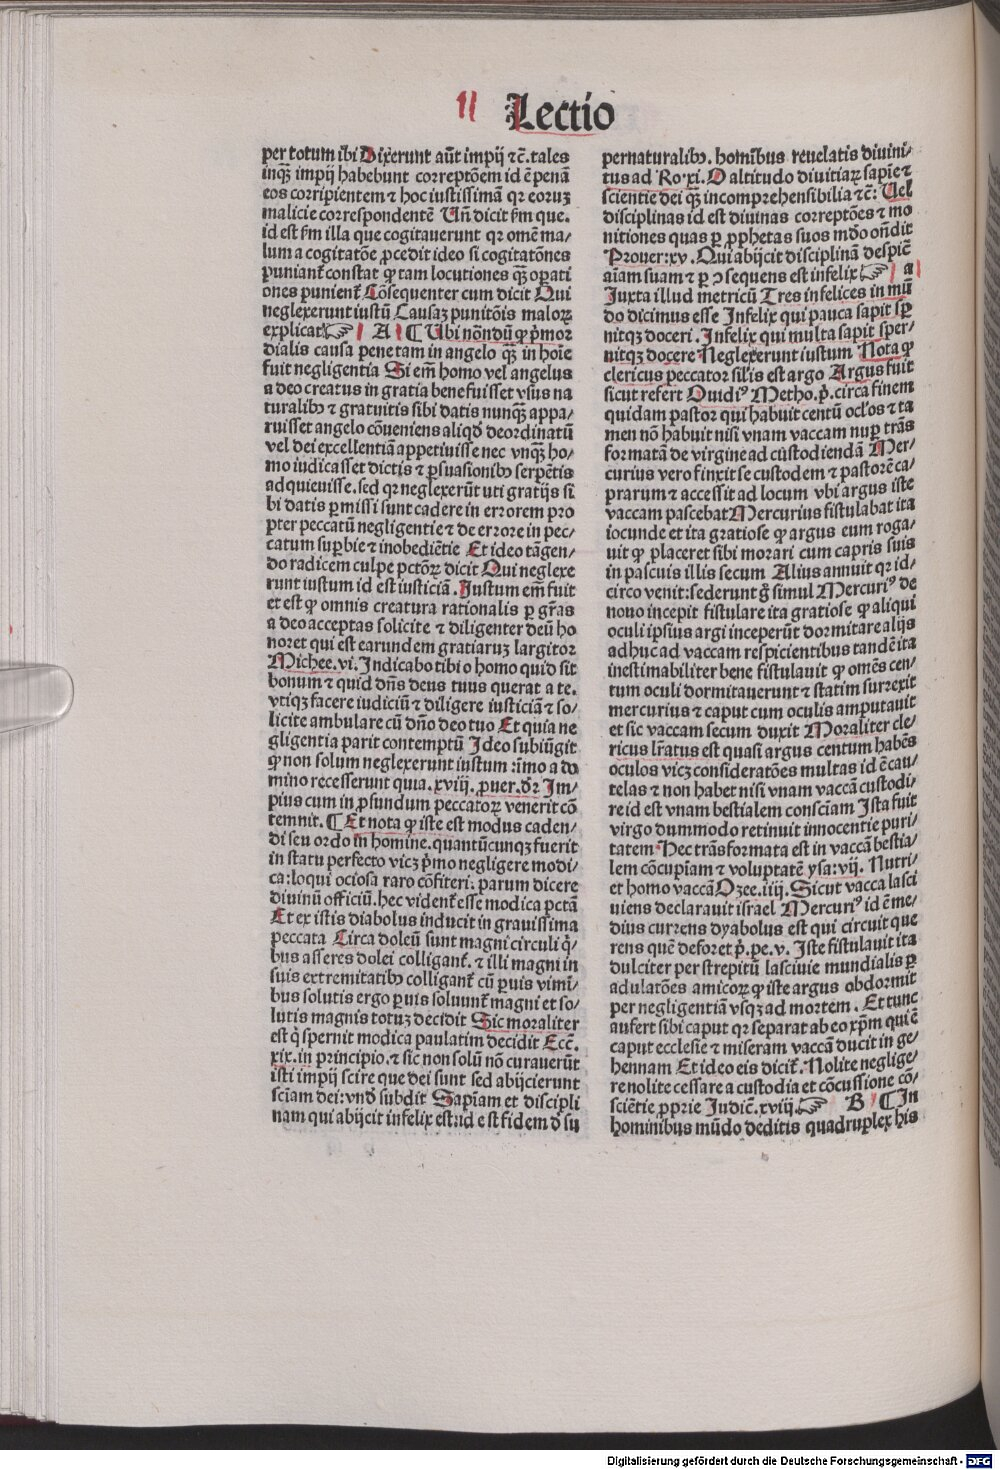 Lectio
per totum ibi Dixerunt aūt impij ⁊c̄. tales
inqꝫ impij habebunt correptōem id ē penā
eos corripientem ⁊ hoc iustissimā qꝛ eoruꝫ
malicie correspondentē Un̄ dicit ẜm que.
id est ẜm illa que cogitauerunt qꝛ omē ma⸗
lum a cogitatōe ꝓcedit ideo si cogitatōnes
puniant᷑ constat ꝙ tam locutiones qꝫ̄ oꝑati
ones punient᷑ Cōsequenter cum dicit Qui
neglexerunt iustū Causaꝫ punitōis maloꝝ
explicat. ☞ A ¶ Ubi nōndū ꝙ pͥmor
dialis causa pene tam in angelo qꝫ̄ in hoīe
fuit negligentia Si em̄ homo vel angelus
a deo creatus in gratia bene fuisset vsus na
turalibꝰ ⁊ gratuitis sibi datis nunqꝫ̄ appa⸗
ruisset angelo cōueniens aliqd̓ deordinatū
vel dei excellentiā appetiuisse nec vnqꝫ̄ ho⸗
mo iudicasset dictis ⁊ ꝑsuasionibꝰ serpētis
adquieuisse. sed qꝛ neglexerūt uti gratijs si
bi datis ꝑmissi sunt cadere in errorem pro
pter peccatū negligentie ⁊ de errore in pec⸗
catum suꝑbie ⁊ inobediētie Et ideo tāgen⸗
do radicem culpe pctōꝝ dicit Qui neglexe
runt iustum id est iusticiā. Justum em̄ fuit
et est ꝙ omnis creatura rationalis ꝑ gr̄as
a deo acceptas solicite ⁊ diligenter deū ho
noret qui est earundem gratiaruꝫ largitor
Michee. vi. Indicabo tibi o homo quid sit
bonum ⁊ quid dn̄s deus tuus querat a te.
vtiqꝫ facere iudiciū ⁊ diligere iusticiā ⁊ so⸗
licite ambulare cū dn̄o deo tuo Et quia ne
gligentia parit contemptū Ideo subiūgit
ꝙ non solum neglexerunt iustum: īmo a do
mino recesserunt quia. xviii. ꝓuer. dꝛ̄ Im⸗
pius cum in ꝓfundum peccatoꝝ venerit cō
temnit. ¶ Et nota ꝙ iste est modus caden⸗
di seu ordo in homine. quantūcunqꝫ fuerit
in statu perfecto vicꝫ pͥmo negligere modi⸗
ca: loqui ociosa raro cōfiteri: parum dicere
diuinū officiū. hec vident᷑ esse modica pctā
Et ex istis diabolus inducit in grauissima
peccata Circa doleū sunt magni circuli qͥ⸗
bus asseres dolei colligant᷑. ⁊ illi magni in
suis extremitatibꝰ colligant᷑ cū ꝑuis vimī⸗
bus solutis ergo ꝑuis soluunt᷑ magni et so⸗
lutis magnis totuꝫ decidit Sic moraliter
est qͥ spernit modica paulatim decidit Ecc̄.
xix. in principio. ⁊ sic non solū nō curauerūt
isti impij scire que dei sunt sed abijcierunt
sciam dei: vnd̓ subdit Sapiam et discipli
nam qui abijcit infelix est: id est fidem d̓ su
pernaturalibꝰ. hominibus reuelatis diuini⸗
tus ad Ro. xi. O altitudo diuitiaꝝ sapīe ⁊
scientie dei qꝫ̄ incomprehensibilia ⁊c̄: Uel
disciplinas id est diuinas correptōes ⁊ mo
nitiones quas ꝑ ꝓphetas suos mōdo on̄dit
Prouer: xv. Qui abijcit disciplinā despic̄
aīam suam ⁊ ꝑ ↄsequens est infelix ☞ a
Juxta illud metricū Tres infelices in mū
do dicimus esse Infelix qui pauca sapit sꝑ
nitqꝫ doceri. Infelix qui multa sapit sper⸗
nitqꝫ docere Neglexerunt iustum Nota ꝙ
clericus peccator sil̓is est argo Argus fuit
sicut refert Ouidiꝰ Metho. pͥ. circa finem
quidam pastor qui habuit centū ocl̓os ⁊ ta
men nō habuit nisi vnam vaccam nuꝑ trās
formatā de virgine ad custodiendā Mer⸗
curius vero finxit se custodem ⁊ pastorē ca⸗
prarum ⁊ accessit ad locum vbi argus iste
vaccam pascebat Mercurius fistulabat ita
iocunde et ita gratiose ꝙ argus eum roga⸗
uit ꝙ placeret sibi morari cum capris suis
in pascuis illis secum Alius annuit qꝛ id⸗
circo venit: sederunt gͦ simul Mercuriꝰ de
nouo incepit fistulare ita gratiose ꝙ aliqui
oculi ipsius argi inceperūt dormitare alijs
adhuc ad vaccam respicientibus tandē ita
inestimabiliter bene fistulauit ꝙ omēs cen⸗
tum oculi dormitauerunt ⁊ statim surrexit
mercurius ⁊ caput cum oculis amputauit
et sic vaccam secum duxit Moraliter cle⸗
ricus lr̄atus est quasi argus centum habēs
oculos vicꝫ consideratōes multas id ē cau⸗
telas ⁊ non habet nisi vnam vaccā custodi⸗
re id est vnam bestialem consc̄iam Ista fuit
virgo dummodo retinuit innocentie puri⸗
tatem Hec trāsformata est in vaccā bestia⸗
lem cōcupīam ⁊ voluptatē ysa: vij. Nutri⸗
et homo vaccā Ozee. iiij. Sicut vacca lasci
uiens declarauit israel Mercuriꝰ id ē me⸗
dius currens dyabolus est qui circuit que
rens quē deforet pͥ. pe. v. Iste fistulauit ita
dulciter per strepitū lasciuie mundialis ꝑ
adulatōes amicoꝝ ꝙ iste argus obdormit
per negligentiā vsqꝫ ad mortem. Et tunc
aufert sibi caput qꝛ separat ab eo xp̄m qui ē
caput ecclesie ⁊ miseram vaccā ducit in ge⸗
hennam Et ideo eis dicit᷑. Nolite neglige⸗
re nolite cessare a custodia et cōcussione cō⸗
sciētie ꝓprie Judic̄. xviij. ☞ B ¶ In
hominibus mūdo deditis quadruplex his
Digitalisierung gefördert durch die Deutsche Forschungsgemeinschaft - DFG